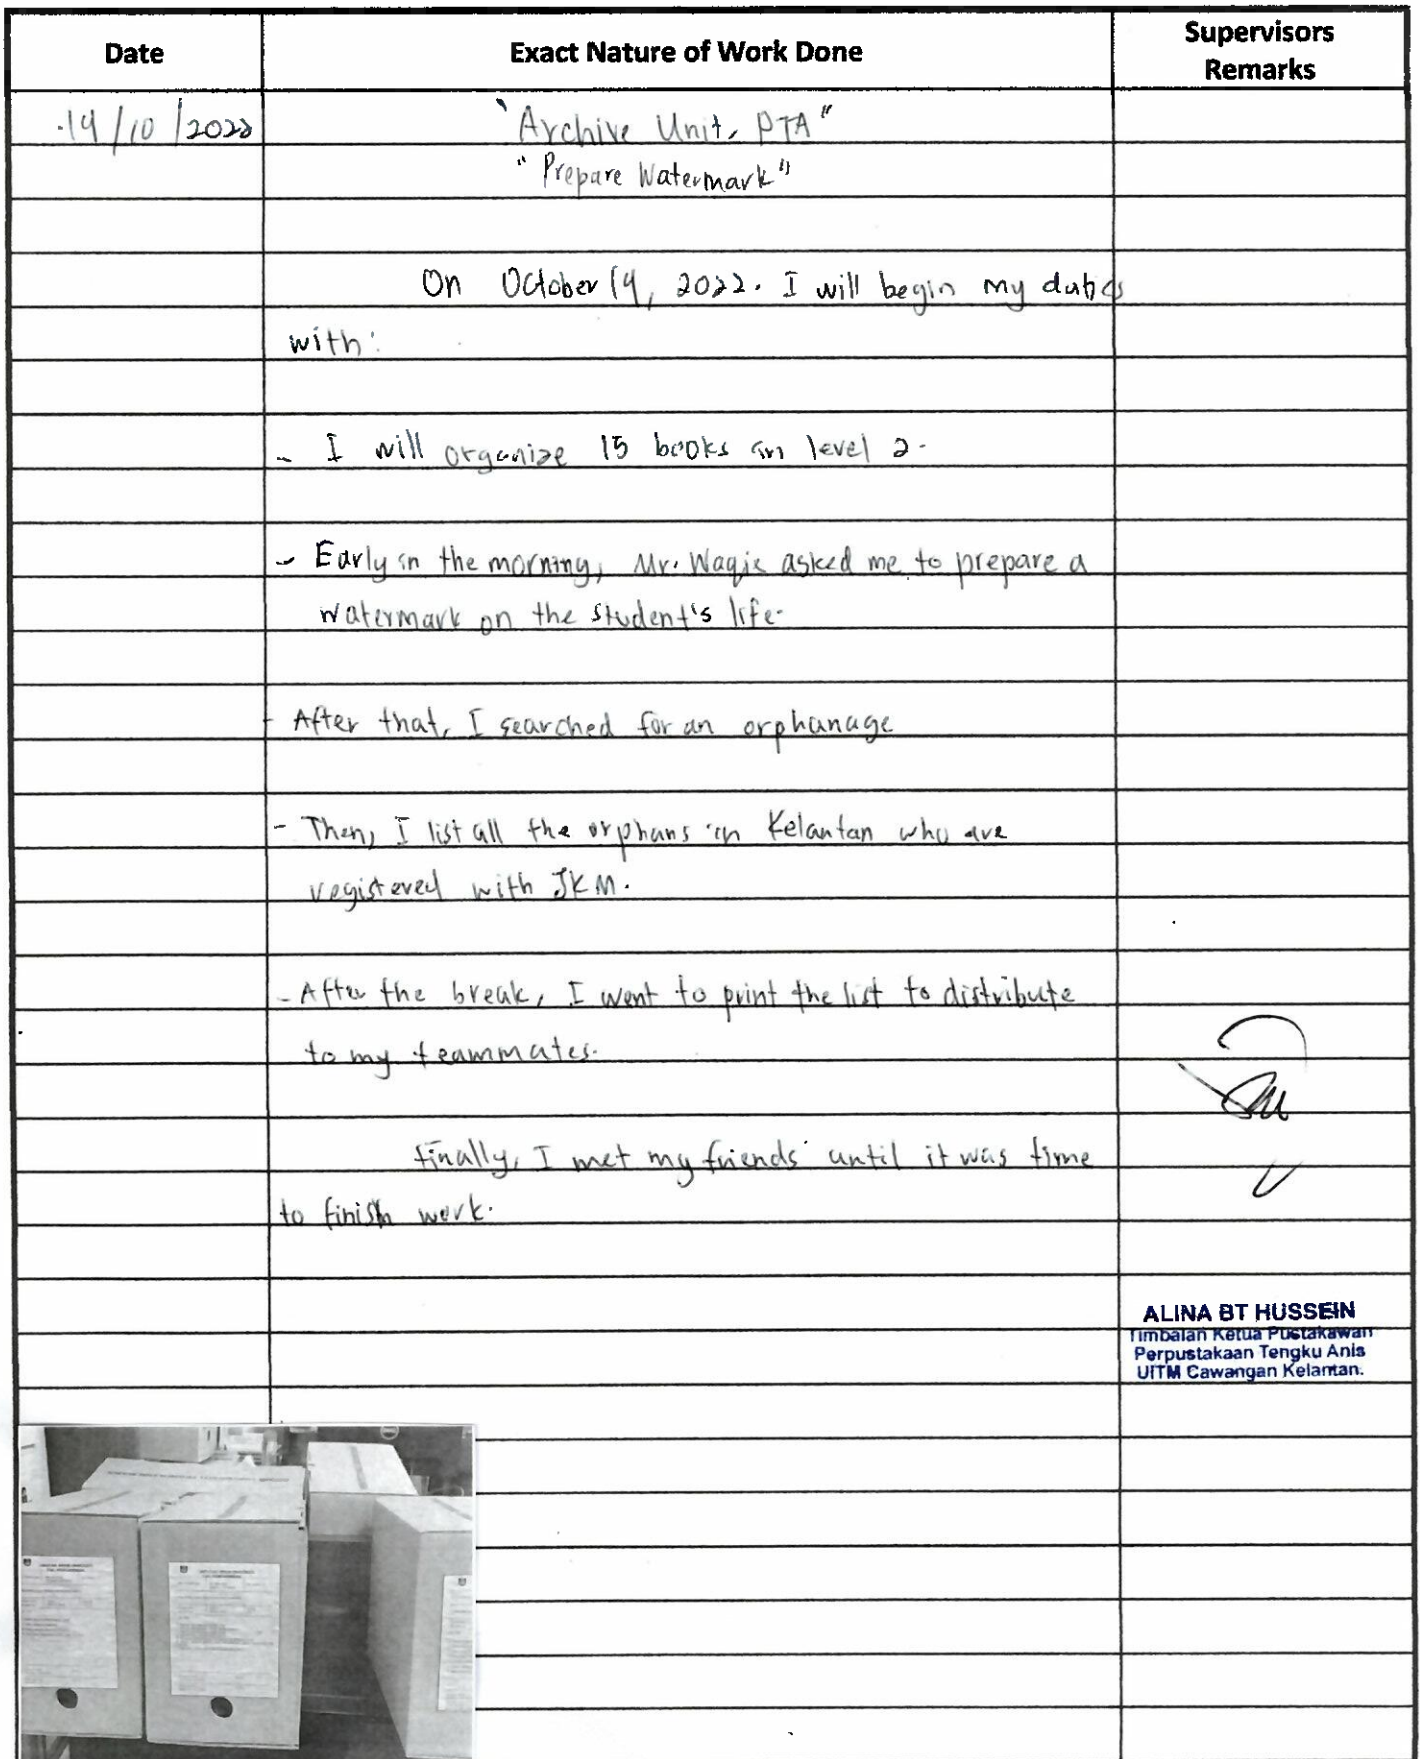 Date
Exact Nature of Work Done
Supervisors
Remarks
14/10/2022
"Archive Unit, PTA"
"Prepare Watermark"
On October 14, 2022. I will begin my duties
with:
- I will organize 15 books in level 2.
- Early in the morning, Mr. Waqie asked me to prepare a
watermark on the student's life.
- After that, I searched for an orphanage
- Then, I list all the orphans in Kelantan who are
registered with JKM.
- After the break, I went to print the list to distribute
to my teammates.
Finally, I met my friends until it was time
to finish work.
ALINA BT HUSSEIN
Timbalan Ketua Pustakawan
Perpustakaan Tengku Anis
UITM Cawangan Kelantan.